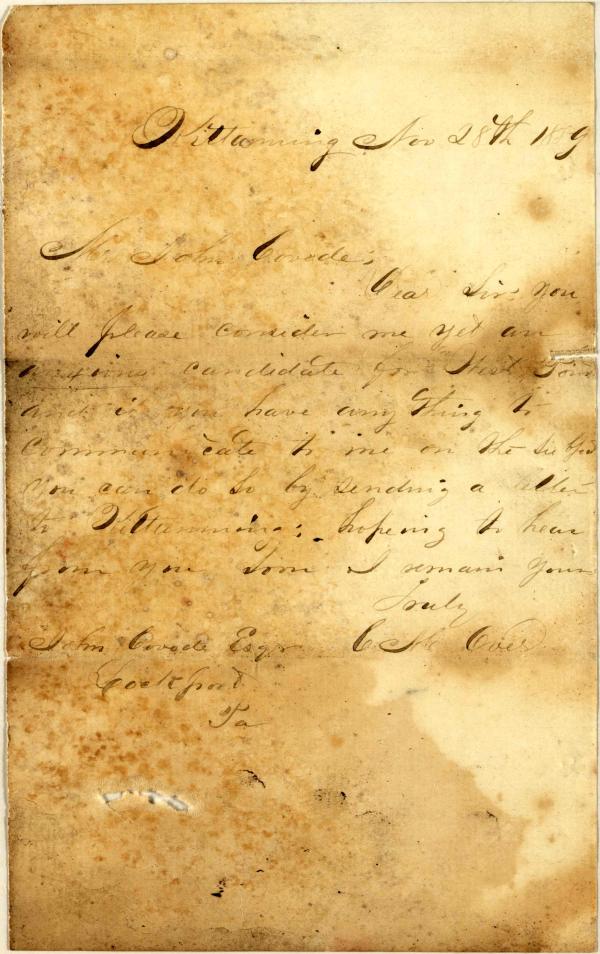 Kittanning Nov 28th 1859
Mr John Covode;
Dear Sir you
will please consider me yet an
anxious candidate for West Point
and if you have any thing to
communicate to me on the subject
you can do so by sending a letter
to Kittanning; hopeing to hear
from you soon I remain yours
Truly
John Covode Esqr C
Lockport
Pa